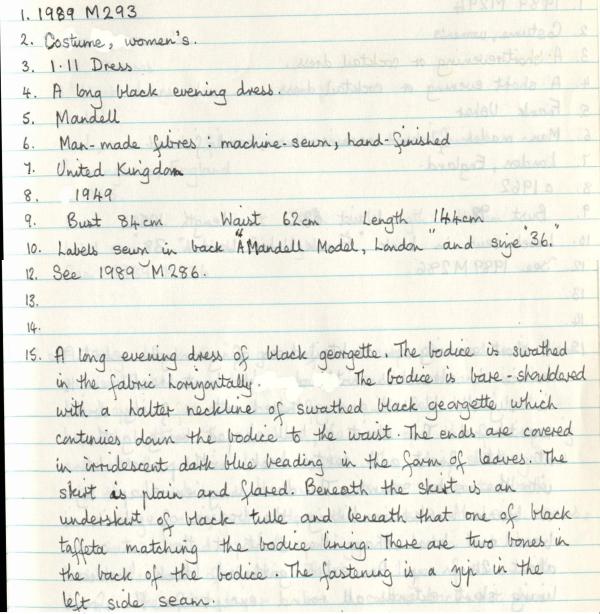 1. 1989 M293
2. Costume, women's.
3. 1.11 Dress
4. A long black evening dress.
5. Mandell
6. Man-made fibres : machine-sewn, hand-finished
7. United Kingdom
8. 1949
9. Bust 84cm Waist 62cm Length 144cm
10. Labels sewn in back "A Mandell Model, London" and size "36."
12. See 1989 M286.
13.
14.
15. A long evening dress of black georgette. The bodice is swathed
in the fabric horizontally. The bodice is bare-shouldered
with a halter neckline of swathed black georgette which
continues down the bodice to the waist. The ends are covered
in irridescent dark blue beading in the form of leaves. The
skirt is plain and flared. Beneath the skirt is an
underskirt of black tulle and beneath that one of black
taffeta matching the bodice lining. There are two bones in
the back of the bodice. The fastening is a zip in the
left side seam.